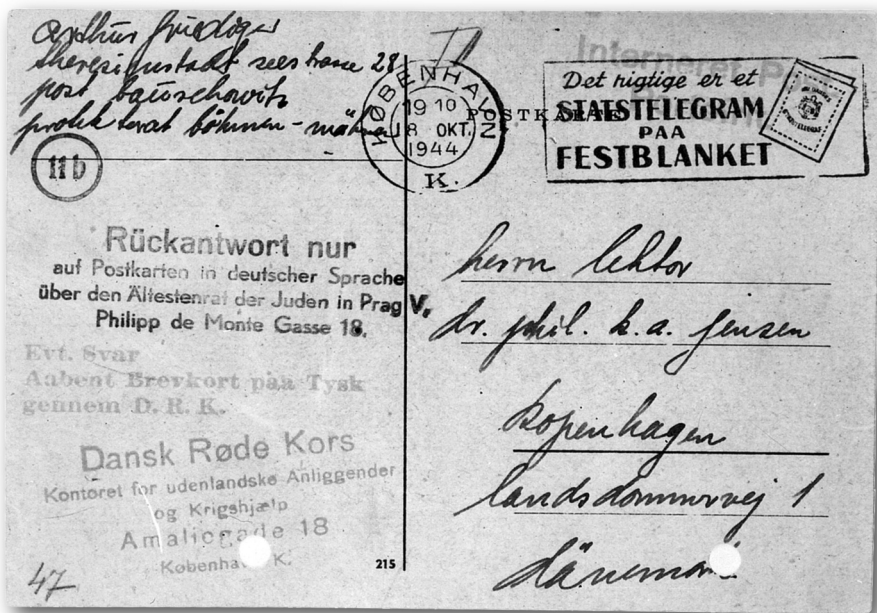 arthur friediger
theresienstadt seestrasse 28
post bauschowitz
protektorat böhmen - mähren
11b
Interneret P
KØBENHAVN
19 10
18 OKT.
1944
K.
POSTKARTE
Det rigtige er et
STATSTELEGRAM
PAA
FESTBLANKET
Rückantwort nur
auf Postkarten in deutscher Sprache
über den Ältestenrat der Juden in Prag V,
Philipp de Monte Gasse 18.
Evt. Svar
Aabent Brevkort paa Tysk
gennem D. R. K.
Dansk Røde Kors
Kontoret for udenlandske Anliggender
og Krigshjælp
Amaliegade 18
København K.
47
215
herrn lektor
dr. phil. k. a. jensen
kopenhagen
landsdommervej 1
dänemark